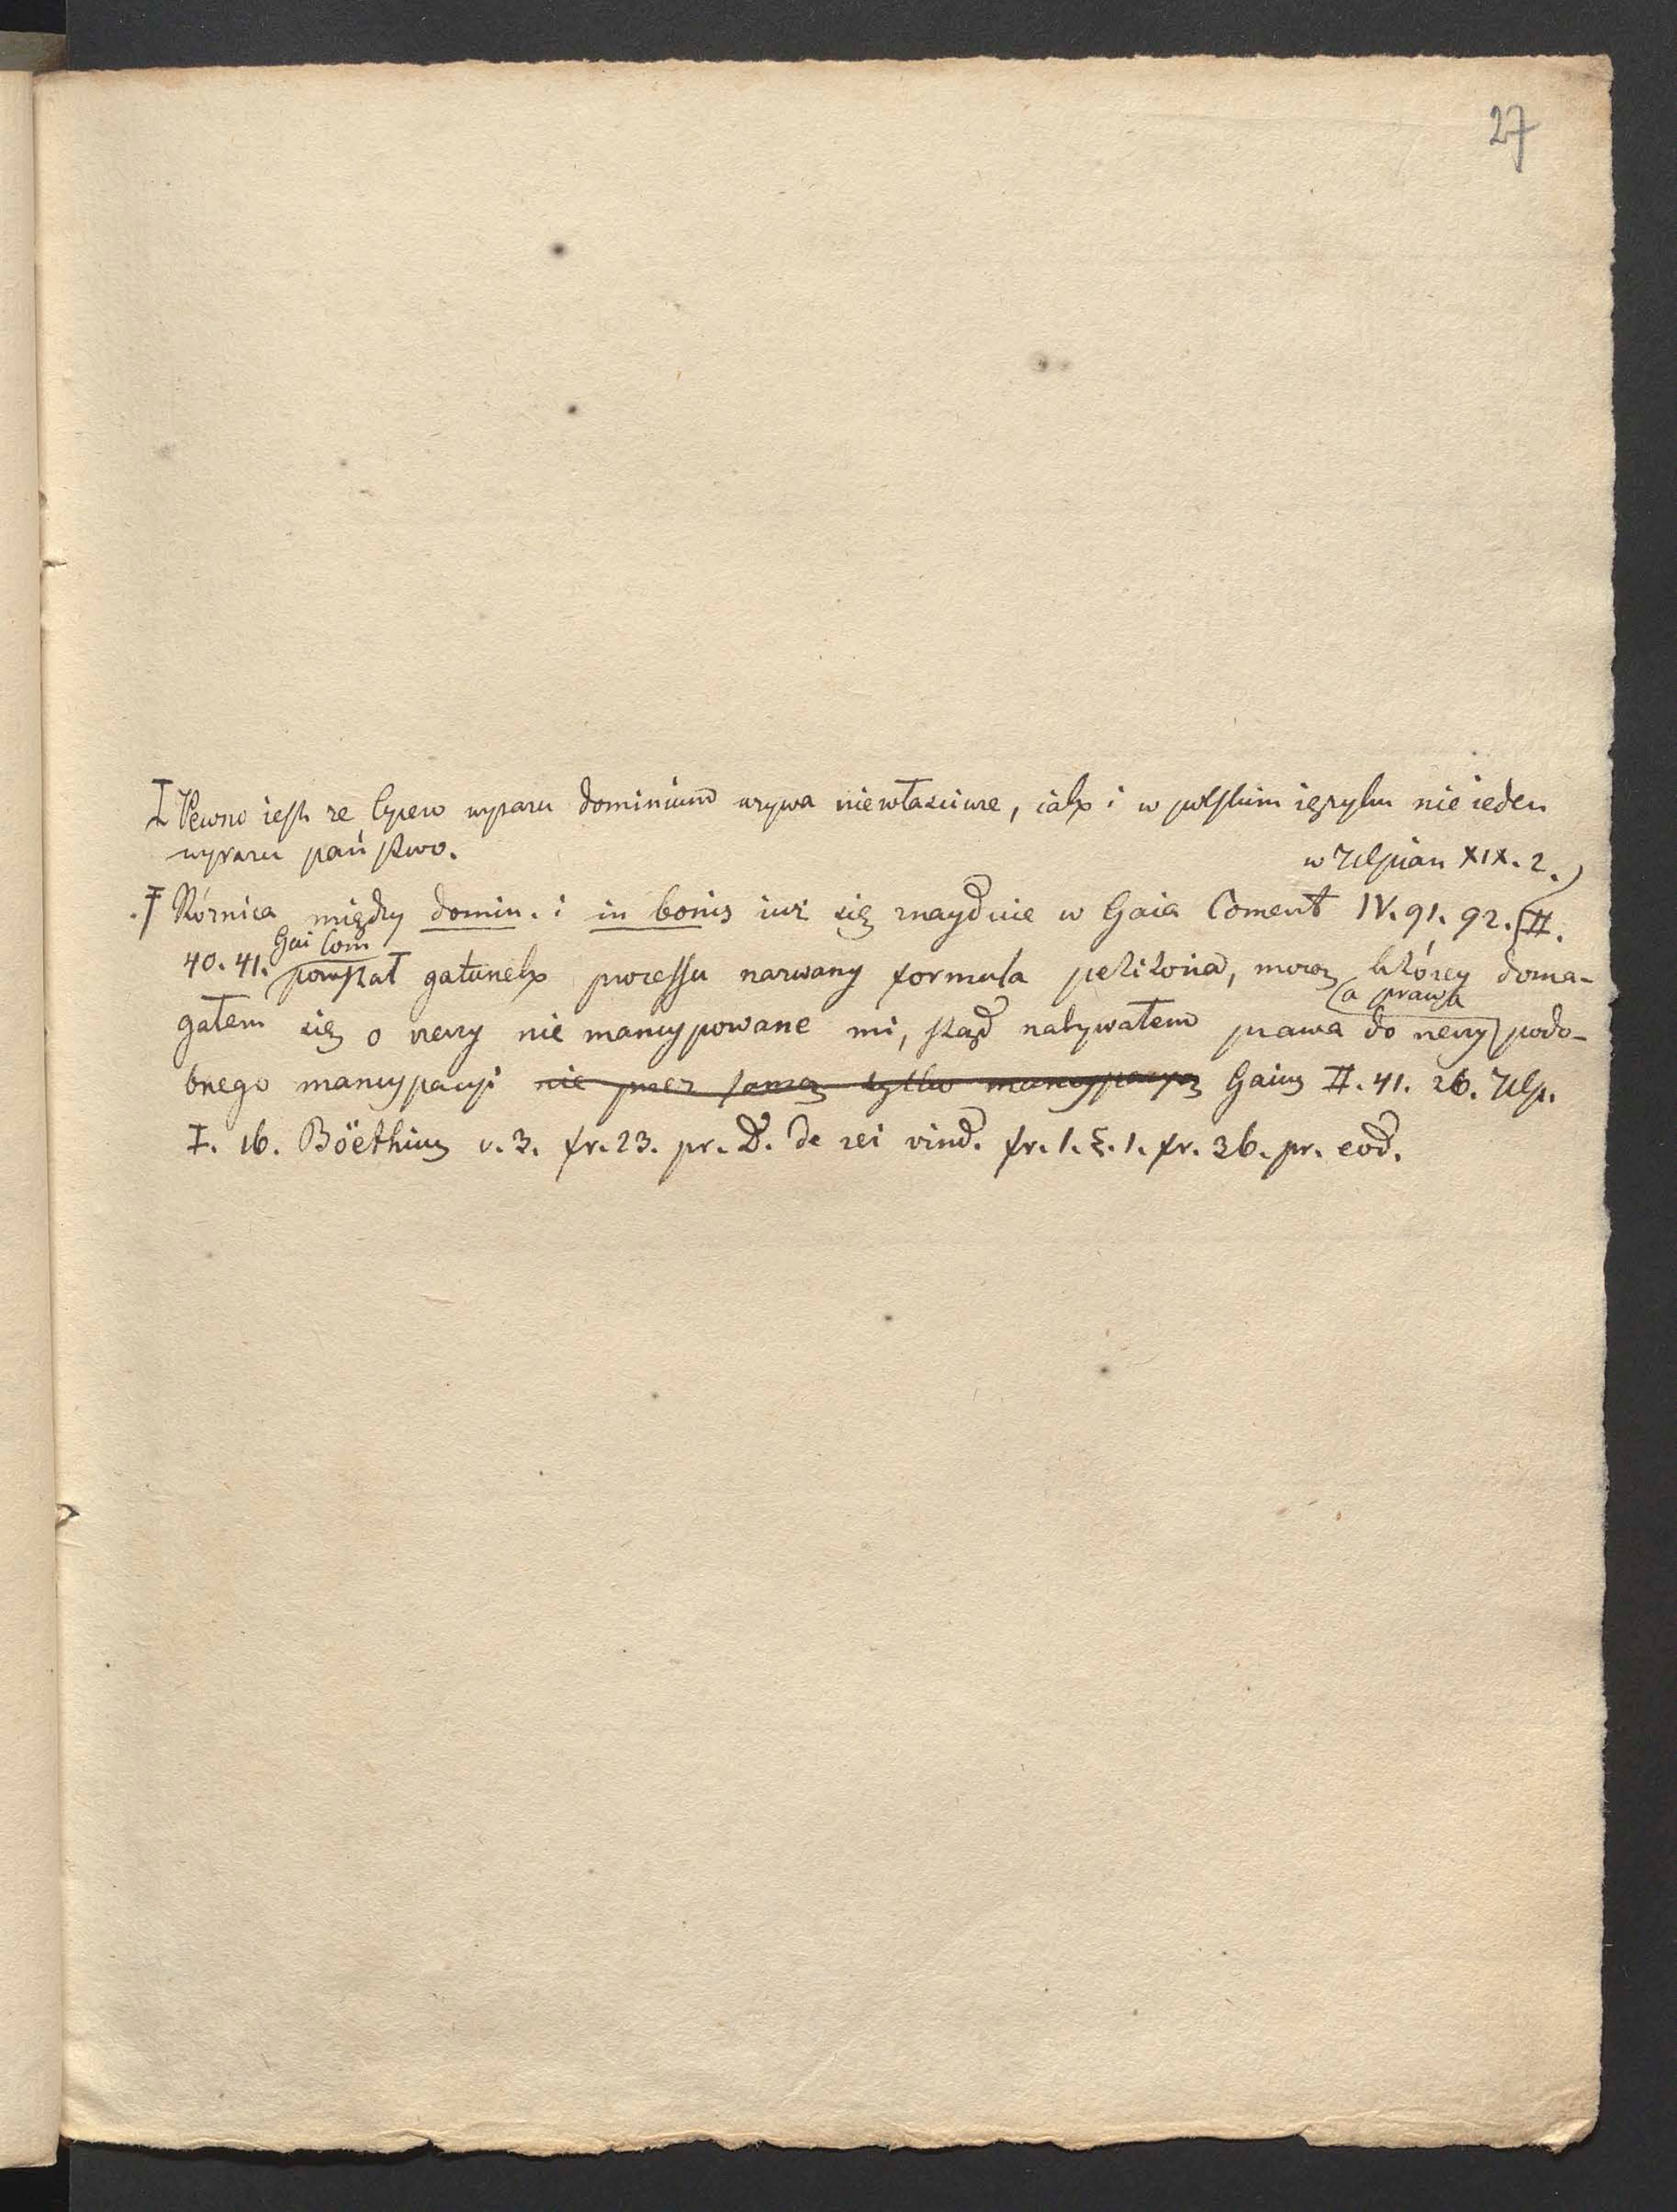 27
Ɨ Pewno iest ze Cycero wyrazu dominium uzywa niewłasciwie, iak i w polskim ięzyku nie ieden
wyrazu państwo.
w Ulpian XIX. 2.)
Ɨ Róznica między domin. i in bonis iuż się znayduie w Gaia Coment IV. 91. 92. (II.
Gai Com
40. 41. powstał gatunek processu nazwany formula petitoria, mocą którey doma-
(a prawa
gałem się o rzeczy nie mancypowane mi, skąd nabywałem prawa do rzeczy) podo-
bnego mancypacyi nie przez samą tylko mancypacyą Gaius II. 41. 26. Ulp.
I. 16. Böethius v. 3. fr. 23. pr. D. de rei vind. fr. 1. §. 1. fr. 36. pr. eod.